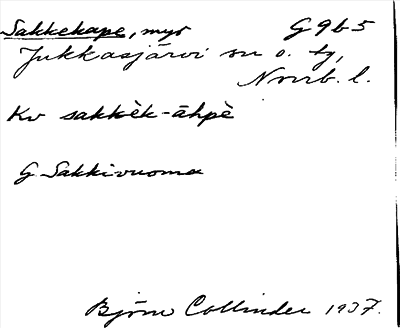 Sakkekape, myr G9b5
Jukkasjärvi sn o. tg,
Norrb. l.
Kv sakkèk-āhpè
G Sakkivuoma
Björn Collinder 1937.